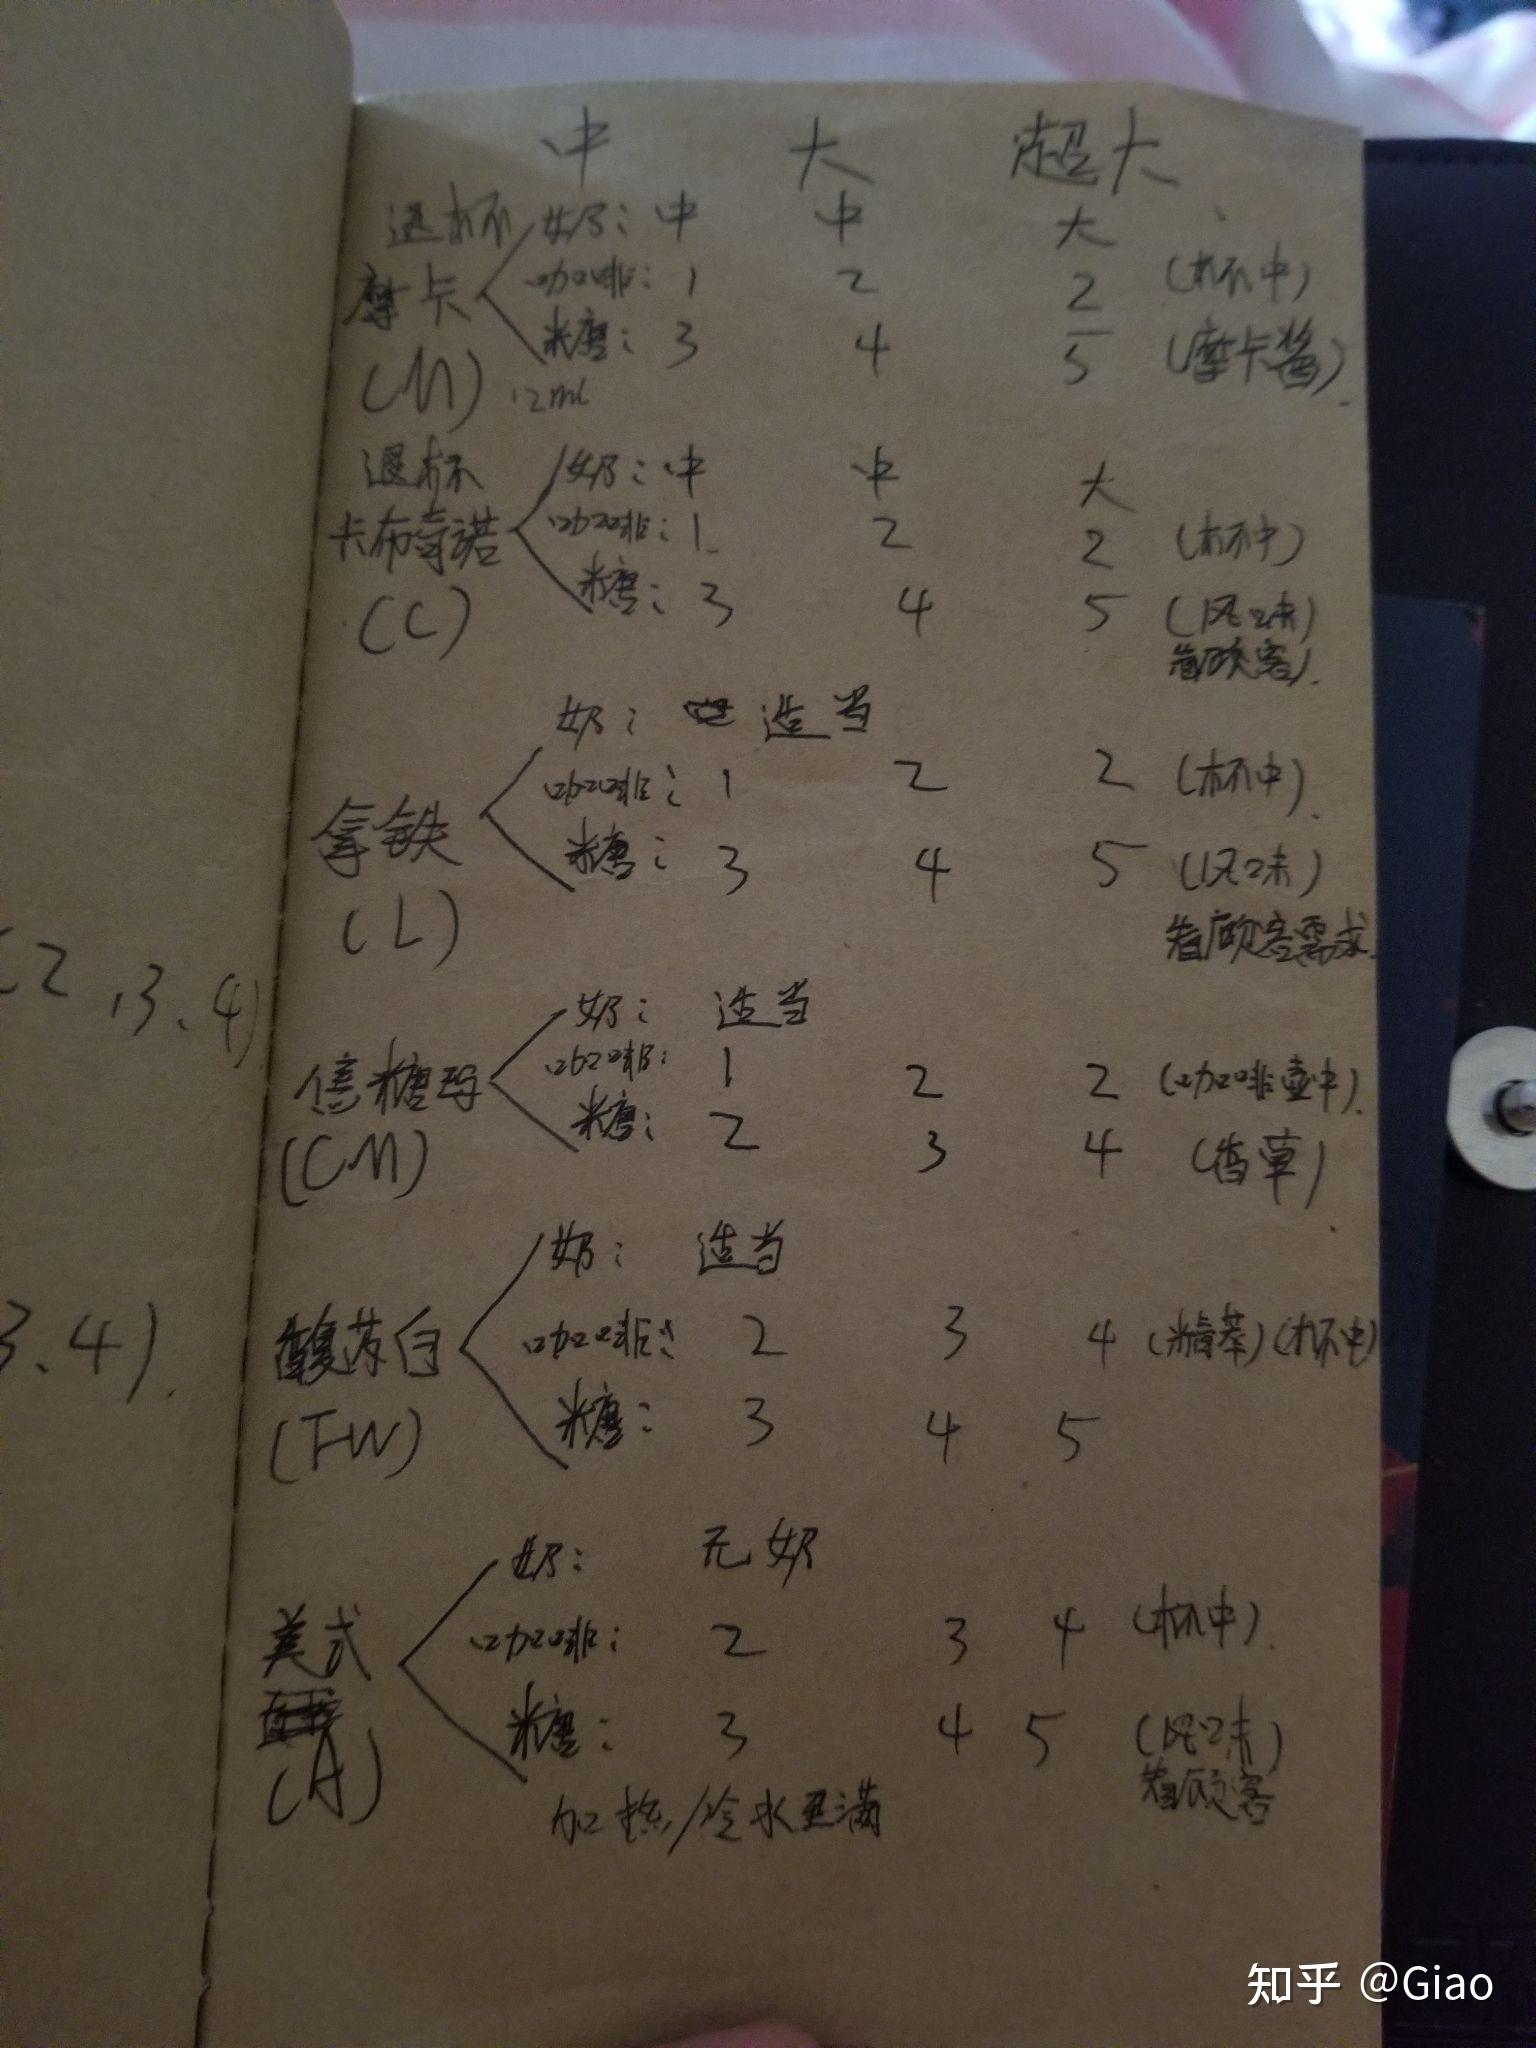 中 大 超大
退杯 奶: 中 中 大
摩卡 咖啡: 1 2 2 (杯中)
糖: 3 4 5 (摩卡酱).
(M) 12ml
退杯 奶: 中 中 大
卡布奇诺 咖啡: 1. 2 2 (杯中)
糖: 3 4 5 (风味)
(C) 看顾客).
奶: 适当
咖啡: 1 2 2 (杯中).
拿铁 糖: 3 4 5 (风味)
(L) 看顾客需求.
奶: 适当
咖啡: 1 2 2 (咖啡壶中).
焦糖玛 糖: 2 3 4 (香草).
(CM)
奶: 适当
馥芮白 咖啡: 2 3 4 (精萃) (杯中)
(FW) 糖: 3 4 5
奶: 无奶
美式 咖啡: 2 3 4 (杯中).
糖: 3 4 5 (风味)
(A) 看顾客
加热/冷水至满
2,3、4)
3、4).
知乎 @Giao